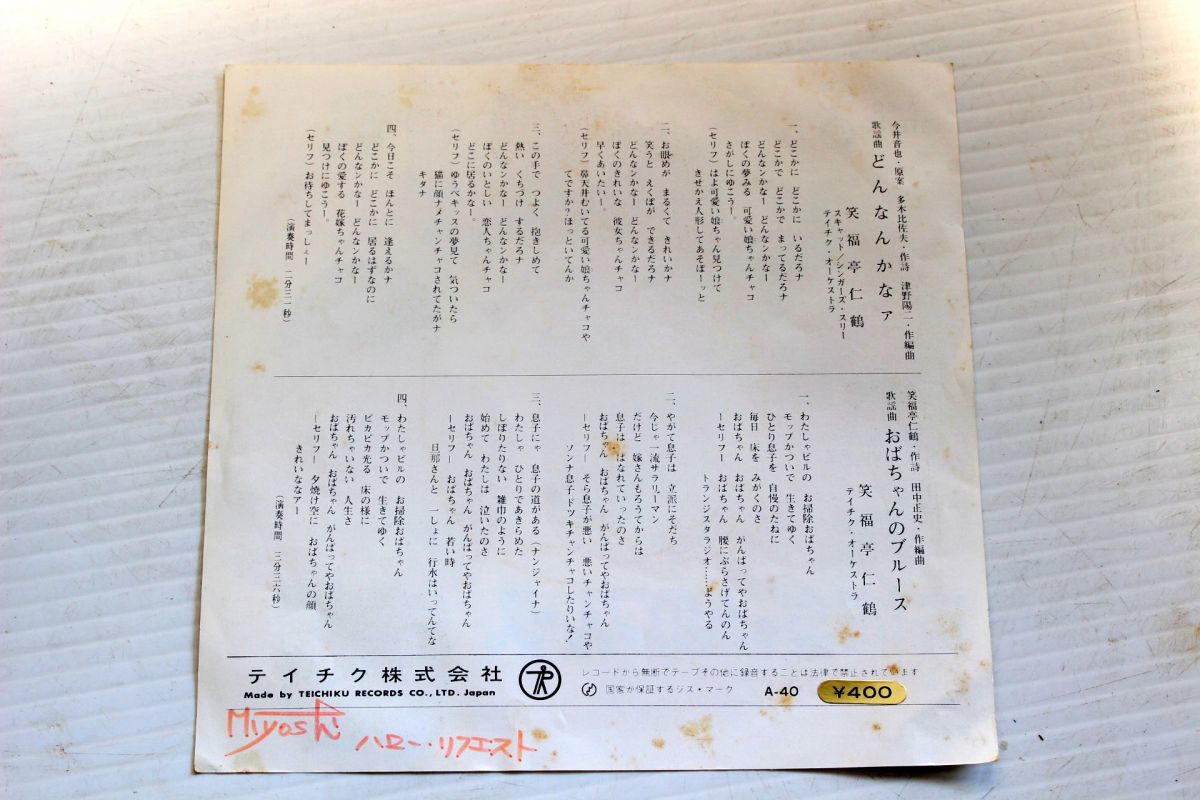 今井音也・原案 多木比佐夫・作詩 津野陽二・作編曲
歌謡曲 どんなんかなァ
笑福亭仁鶴
スキャット/シンガーズ・スリー
テイチク・オーケストラ
一、どこかに どこかに いるだろナ
どこかで どこかで まってるだろナ
どんなンかなー どんなンかなー
ぼくの夢みる 可愛い娘ちゃんチャコ
さがしにゆこうー。
(セリフ)はよ可愛い娘ちゃん見つけて
きせかえ人形してあそぼーッと
二、お眼めが まるくて きれいかナ
笑うと えくぼが できるだろナ
どんなンかなー どんなンかなー
ぼくのきれいな 彼女ちゃんチャコ
早くあいたいー。
(セリフ)鼻天井むいてる可愛い娘ちゃんチャコや
てですか?ほっといてんか
三、この手で つよく 抱きしめて
熱い くちづけ するだろナ
どんなンかなー どんなンかなー
ぼくのいとしい 恋人ちゃんチャコ
どこに居るかなー。
(セリフ)ゆうべキッスの夢見て 気ついたら
猫に顔ナメチャンチャコされてたがナ
キタナ
四、今日こそ ほんとに 逢えるかナ
どこかに どこかに 居るはずなのに
どんなンかなー どんなンかなー
ぼくの愛する 花嫁ちゃんチャコ
見つけにゆこうー。
(セリフ)お待ちしてまっしぇー
(演奏時間 二分三一秒)
笑福亭仁鶴・作詩 田中正史・作編曲
歌謡曲 おばちゃんのブルース
笑福亭仁鶴
テイチク・オーケストラ
一、わたしゃビルの お掃除おばちゃん
モップかついで 生きてゆく
ひとり息子を 自慢のたねに
毎日 床を みがくのさ
おばちゃん おばちゃん がんばってやおばちゃん
ーセリフー おばちゃん 腰にぶらさげてんのん
トランジスタラジオ……どうやる
二、やがて息子は 立派にそだち
今じゃ一流サラリーマン
だけど 嫁さんもろうてからは
息子は はなれていったのさ
おばちゃん おばちゃん がんばってやおばちゃん
ーセリフー そら息子が悪い 悪いチャンチャコや
ソンナ息子ドツキチャンチャコしたりいな!
三、息子にゃ 息子の道がある(ナンジャイナ)
わたしゃ ひとりであきらめた
しぼりたりない 雑巾のように
始めて わたしは 泣いたのさ
おばちゃん おばちゃん がんばってやおばちゃん
ーセリフー おばちゃん 若い時
旦那さんと 一しょに 行水はいってんてな
四、わたしゃビルの お掃除おばちゃん
モップかついで 生きてゆく
ピカピカ光る 床の様に
汚れちゃいない 人生さ
おばちゃん おばちゃん がんばってやおばちゃん
ーセリフー 夕焼け空に おばちゃんの顔
きれいななアー
(演奏時間 三分三六秒)
テイチク株式会社
Made by TEICHIKU RECORDS CO., LTD. Japan
レコードから無断でテープその他に録音することは法律で禁止されています
国家が保証するジス・マーク A-40 ¥400
Miyoshi ハロー・リクエスト